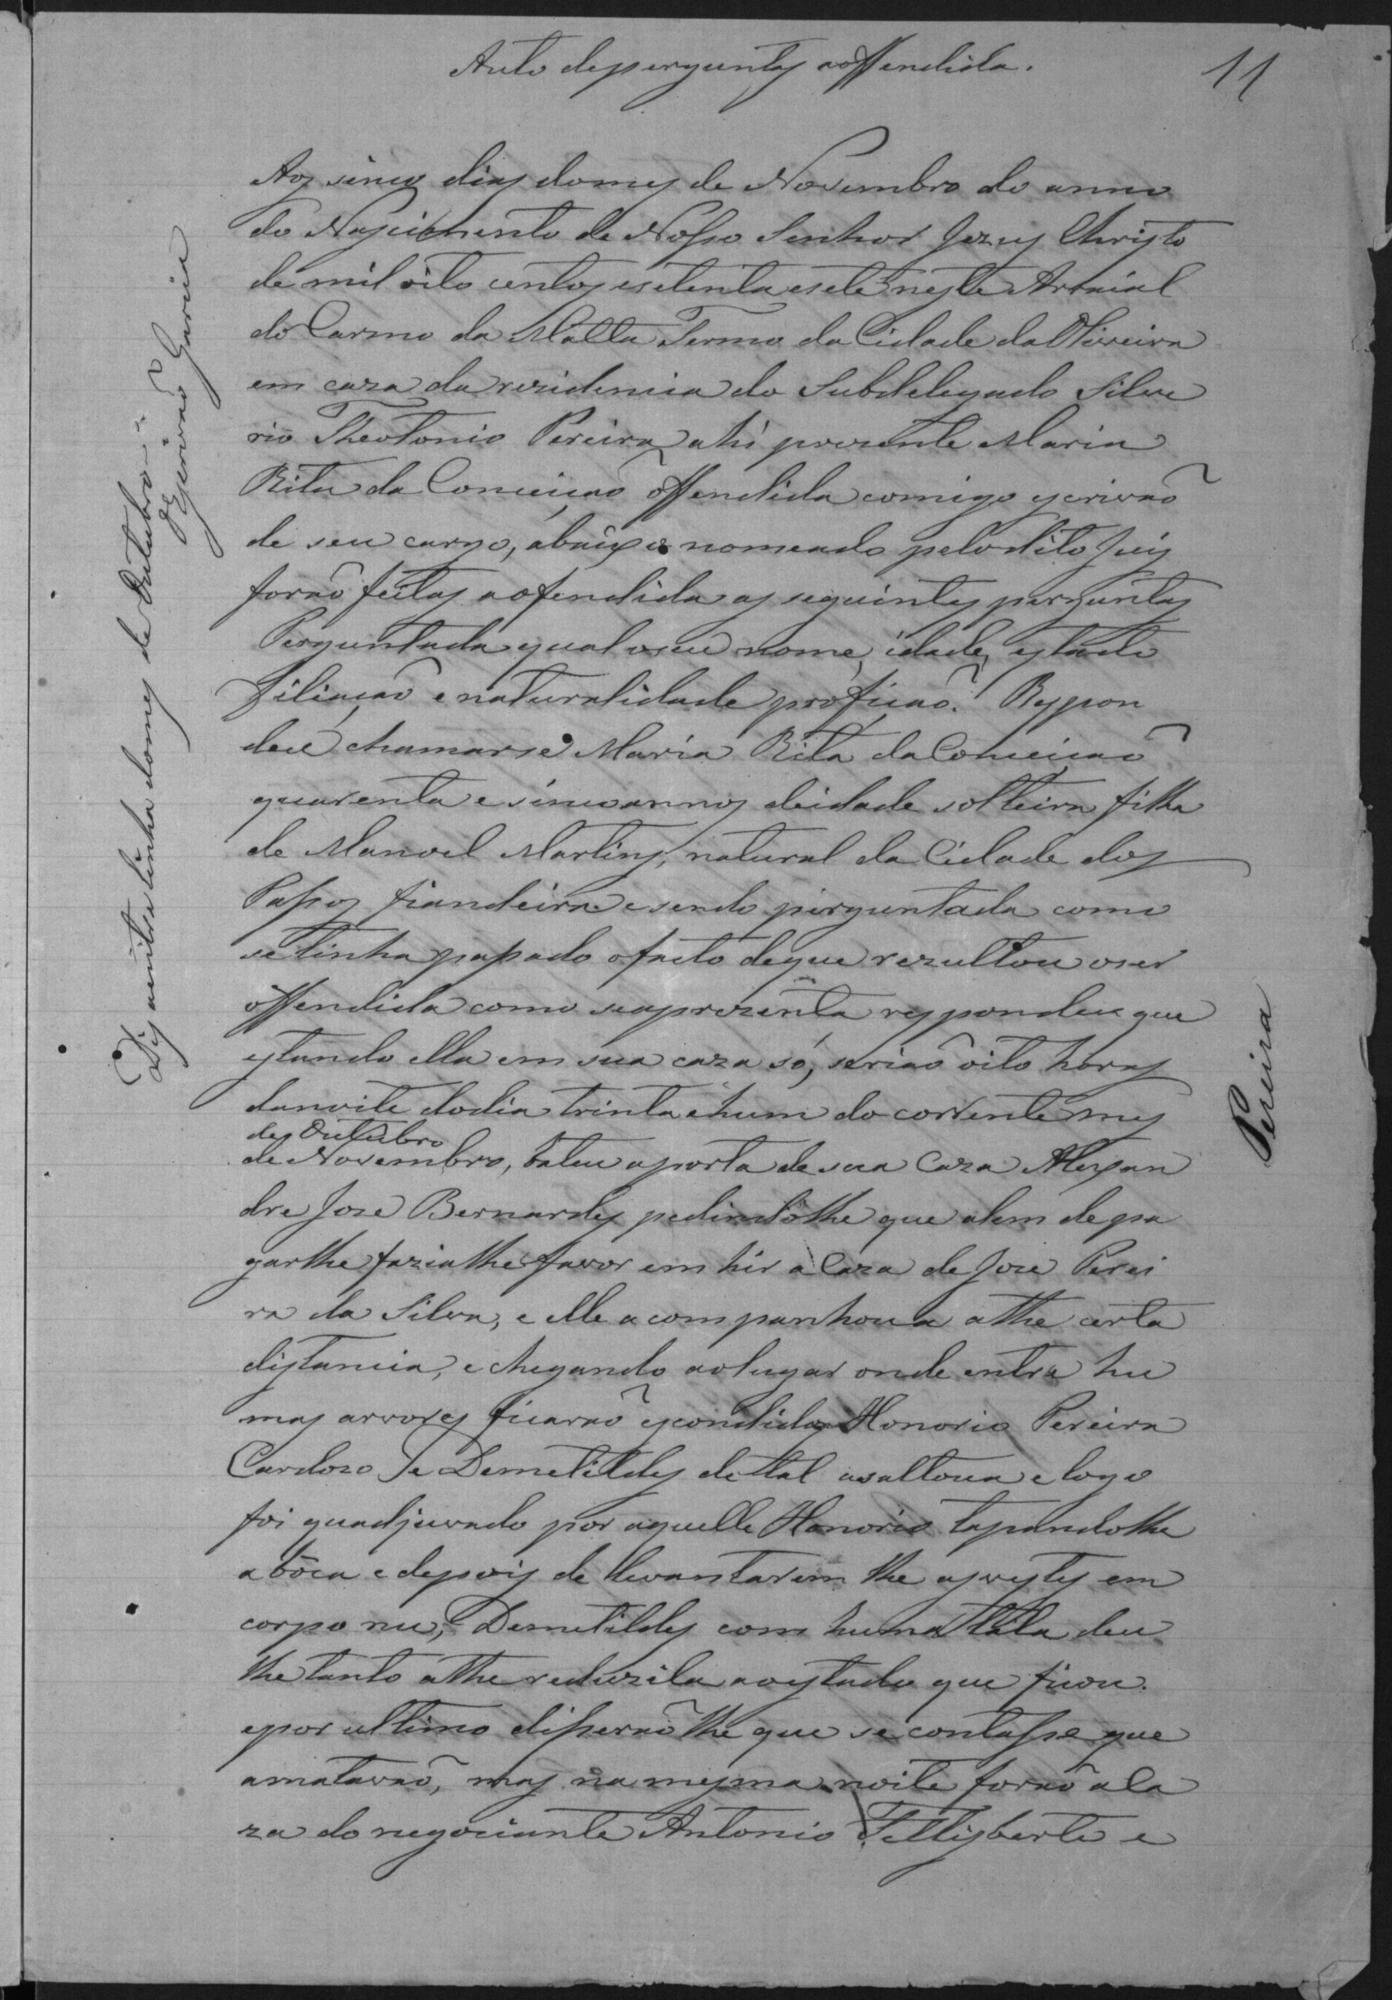 Auto de perguntas a offendida.
11
Aos sinco dias do mes de Novembro do anno
do Nascimento de Nosso Senhor Jezus Christo
de mil oito centos e setenta e sete neste Arraial
do Carmo da Matta Termo da Cidade da Oliveira
em caza da rezidencia do Subdelegado Silve
rio Theotonio Pereira, ahi prezente Maria
Rita da Conceiçaõ offendida comigo escrivaõ
de seu cargo, abaixo nomeado pelo dito Juis
foraõ feitas a ofendida as seguintes perguntas
Perguntada qual o seu nome, idade, estado
filiaçaõ e naturalidade proficaõ? Respon
deu chamarse Maria Rita da Conceicaõ
quarenta e sinco annos de idade solteira filha
de Manoel Martins, natural da Cidade dos
Passos fiandeira e sendo perguntada como
se tinha passado o facto de que rezultou o ser
offendida como se aprezenta respondeu que
estando ella em sua caza só, seriaõ oito horas
da noite do dia trinta e hum do corrente mes
des Outubro
de Novembro, bateu a porta de sua Caza Alexan
dre Joze Bernardes pedindo lhe que alem de pa
garlhe fazia lhe favor em hir a Caza de Joze Perei
ra da Silva, e elle acompanhou a athe certa
distancia, e chegando ao lugar onde entra hu
mas arvores ficaraõ escondidos Honorio Pereira
Cardozo Je Demetildes de tal asaltou a e logo
foi quadjuvado por aquelle Honorio tapandolhe
a bôca e depois de levantarem lhe as vestes em
corpo nu, Demetildes com huma tála deu
lhe tanto athe reduzila ao estado que ficou.
e por ultimo disseraõ lhe que se contasse que
a matavaõ, mas na mesma noite foraõ a Ca
za do negociante Antonio Fellisberto e
Digo emitra linha do mes de Outubro
Escrivaõ Garcia
Pereira